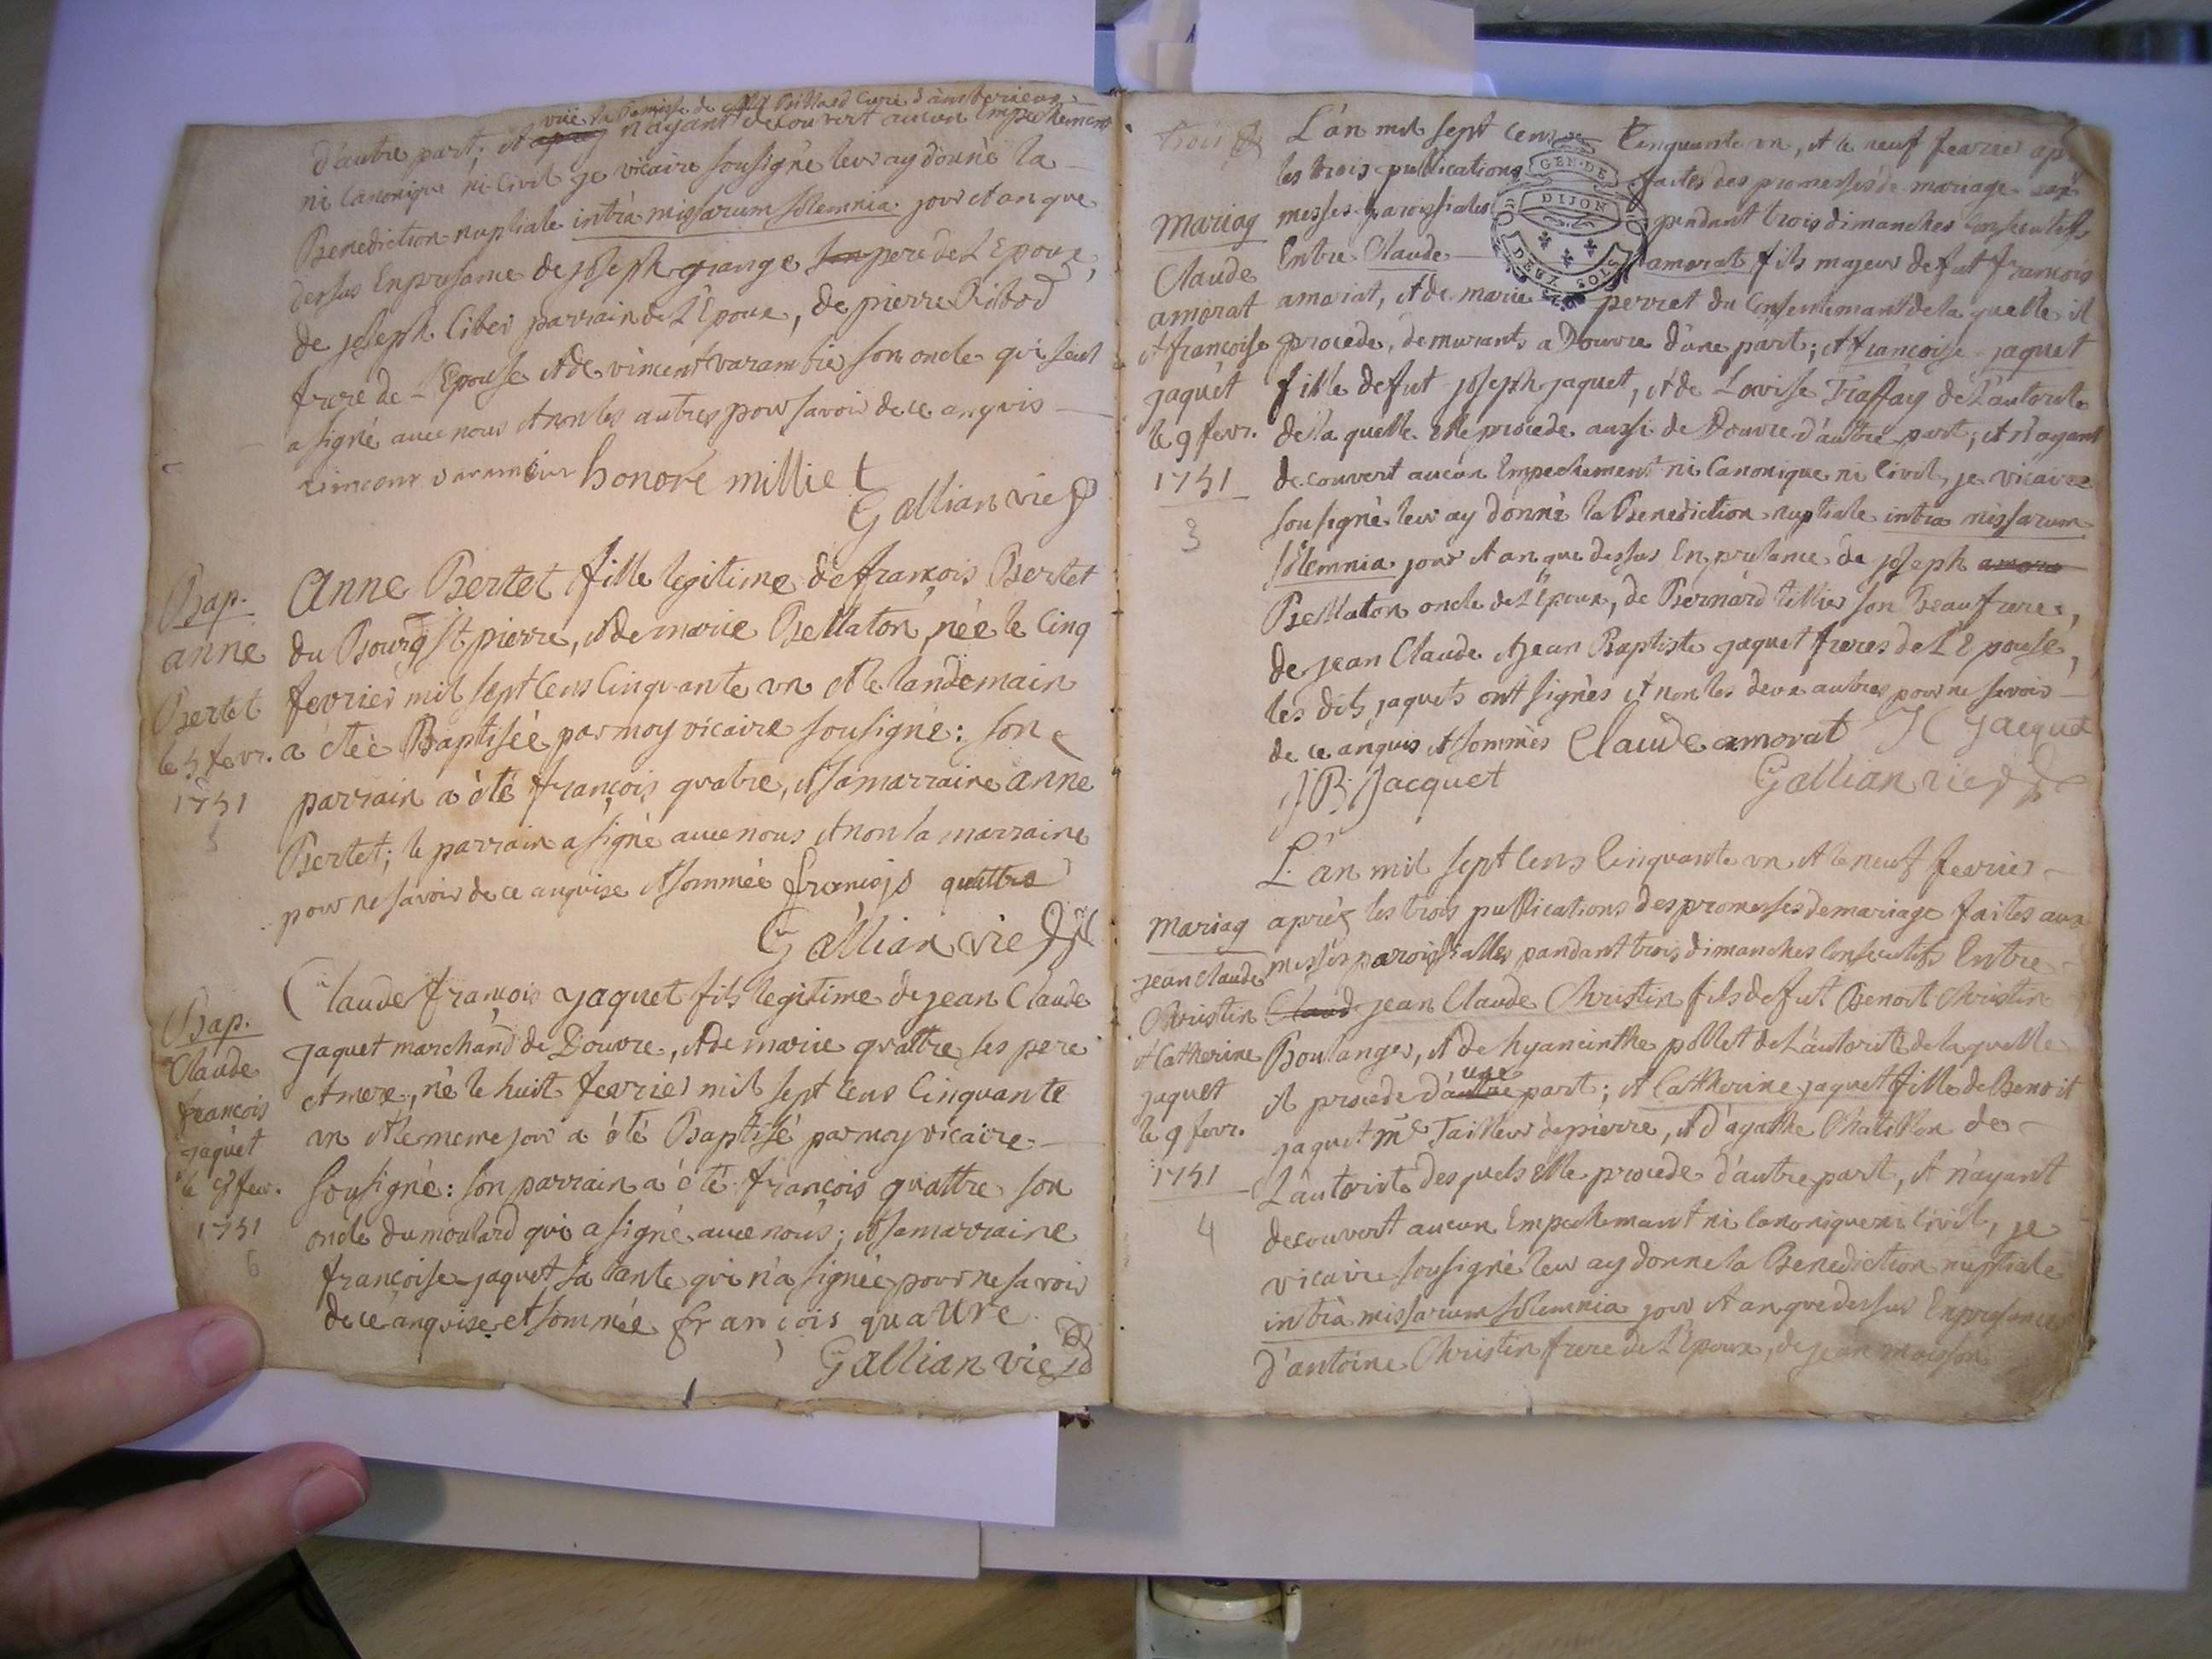 vüe la Remise de Billard Curé d'ambérieux
d'autre part; et n'ayant decouvert aucun Empechement
ni Canonique ni Civil je vicaire sousigné leur ay donné la
Benediction nuptiale intrà missarum solemnia jour et an que
dessus En presance de joseph grange pere de L'Epoux,
de joseph liber parrain de L'Epoux, de pierre Ribod
frere de L'Epouse et de vincent varambier son oncle qui seul
a signé avec nous et non les autres pour savoir de ce anquis
vincent varambier honoré milliet
Gallian vic
Bap.
anne
Bertet
le 5 fevr.
1751
5
Anne Bertet fille legitime de françois Bertet
du Bourg St pierre, et de marie Bellaton, née le Cinq
fevrier mil sept Cens Cinquante un et le landemain
a étéé Baptiséé par moy vicaire sousigné: son
parrain a été françois quatre, et sa marraine anne
Bertet; le parrain a signé avec nous et non la marraine
pour ne savoir de ce anquise et sommée françois quattre
Gallian vic
Bap.
Claude
françois
jaquet
le 8 fevr.
1751
6
Claude françois jaquet fils legitime de jean Claude
jaquet marchand de Douvre, et de marie quattre ses pere
et mere, né le huit fevrier mil sept Cens Cinquante
un et le meme jour a été Baptisé par moy vicaire
sousigné: son parrain a été françois quattre son
oncle du moulard qui a signé avec nous; et sa marraine
françoise jaquet sa tante qui n'a signée pour ne savoir
de ce anquise et sommée françois quattre
Gallian vic
trois
L'an mil sept Cens Cinquante un, et le neuf fevrier ap
les trois publications faites des promesses de mariage
messes paroissiales pendant trois dimanches Consecutifs
Entre Claude amorat fils majeur de fut françois
amorat, et de marie perret du Consentemant de la quelle il
procede, demurants a Douvre d'une part; et françoise jaquet
fille de fut joseph jaquet, et de Lovise Traffay de L'autorite
de la quelle elle procede aussi de Douvre d'autre part; et n'ayant
decouvert aucun Empechement ni Canonique ni Civil, je vicaire
sousigné leur ay donné la Benediction nuptiale intra missarum
solemnia jour et an que dessus En presance de joseph amora
Bellaton oncle de L'Epoux, de Bernard tillier son Beaufrere,
de jean Claude et jean Baptiste jaquet freres de L'Epouse,
les dits jaquets ont signés et non les deux autres pour ne savoir
de ce anquis et sommés Claude amorat J C Jacquet
J B Jacquet Gallian vic
mariag
Claude
amorat
et françoise
jaquet
le 9 fevr.
1751
3
GEN. DE
DIJON
DEUX SOLS
L'an mil sept Cens Cinquante un et le neuf fevrier
aprés les trois publications des promesses de mariage faites aux
messes paroissialles pandant trois dimanches Consecutifs Entre
Claud jean Claude Christin fils de fut Benoit Christin
Boulanger, et de hyacinthe pollet de L'autorité de la quelle
il procede d'une part; et Catherine jaquet fille de Benoit
jaquet me Tailleur de pierre, et d'agathe Chatillon de
L'autorite des quels elle procede d'autre part, et n'ayant
decouvert aucun Empechemant ni Canonique ni Civil, je
vicaire sousigné leur ay donne la Benediction nuptiale
intrà missarum solemnia jour et an que dessus En presance
d'antoine Christin frere de L'Epoux, de jean moisson
mariag
jean Claude
Christin
et Catherine
jaquet
le 9 fevr.
1751
4